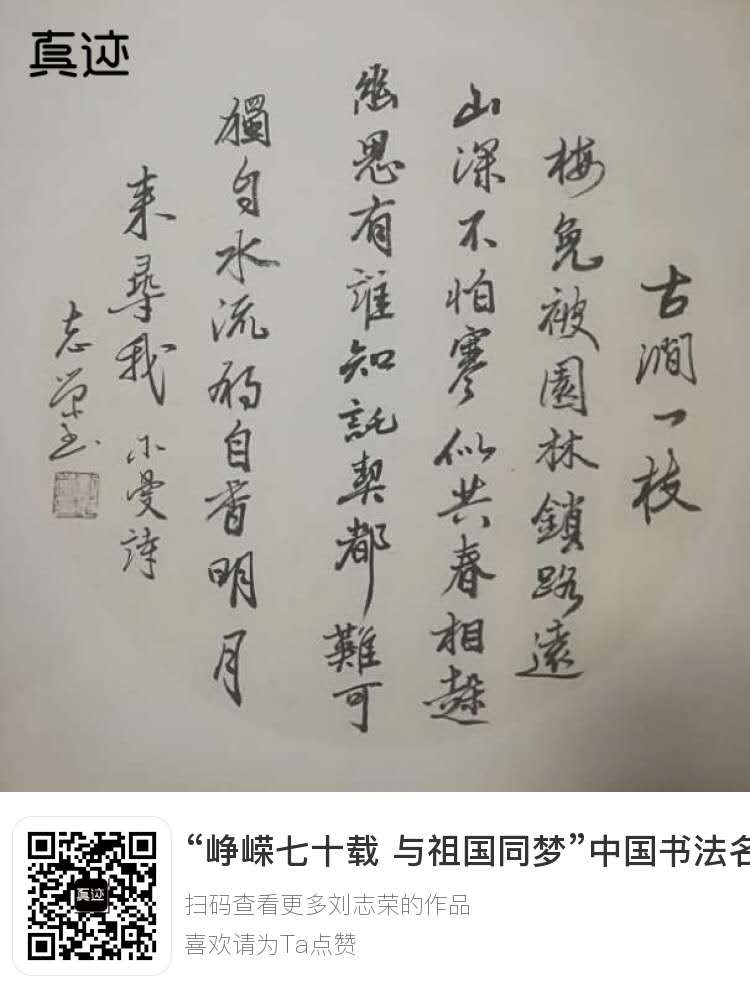 真迹
古澗一枝
梅免被園林鎖路遠
山深不怕寒似共春相趓
幽思有誰知託契都難可
獨自水流独自香明月
来尋我 小曼詩
志榮书
“峥嵘七十载 与祖国同梦”中国书法名
扫码查看更多刘志荣的作品
喜欢请为Ta点赞
真迹